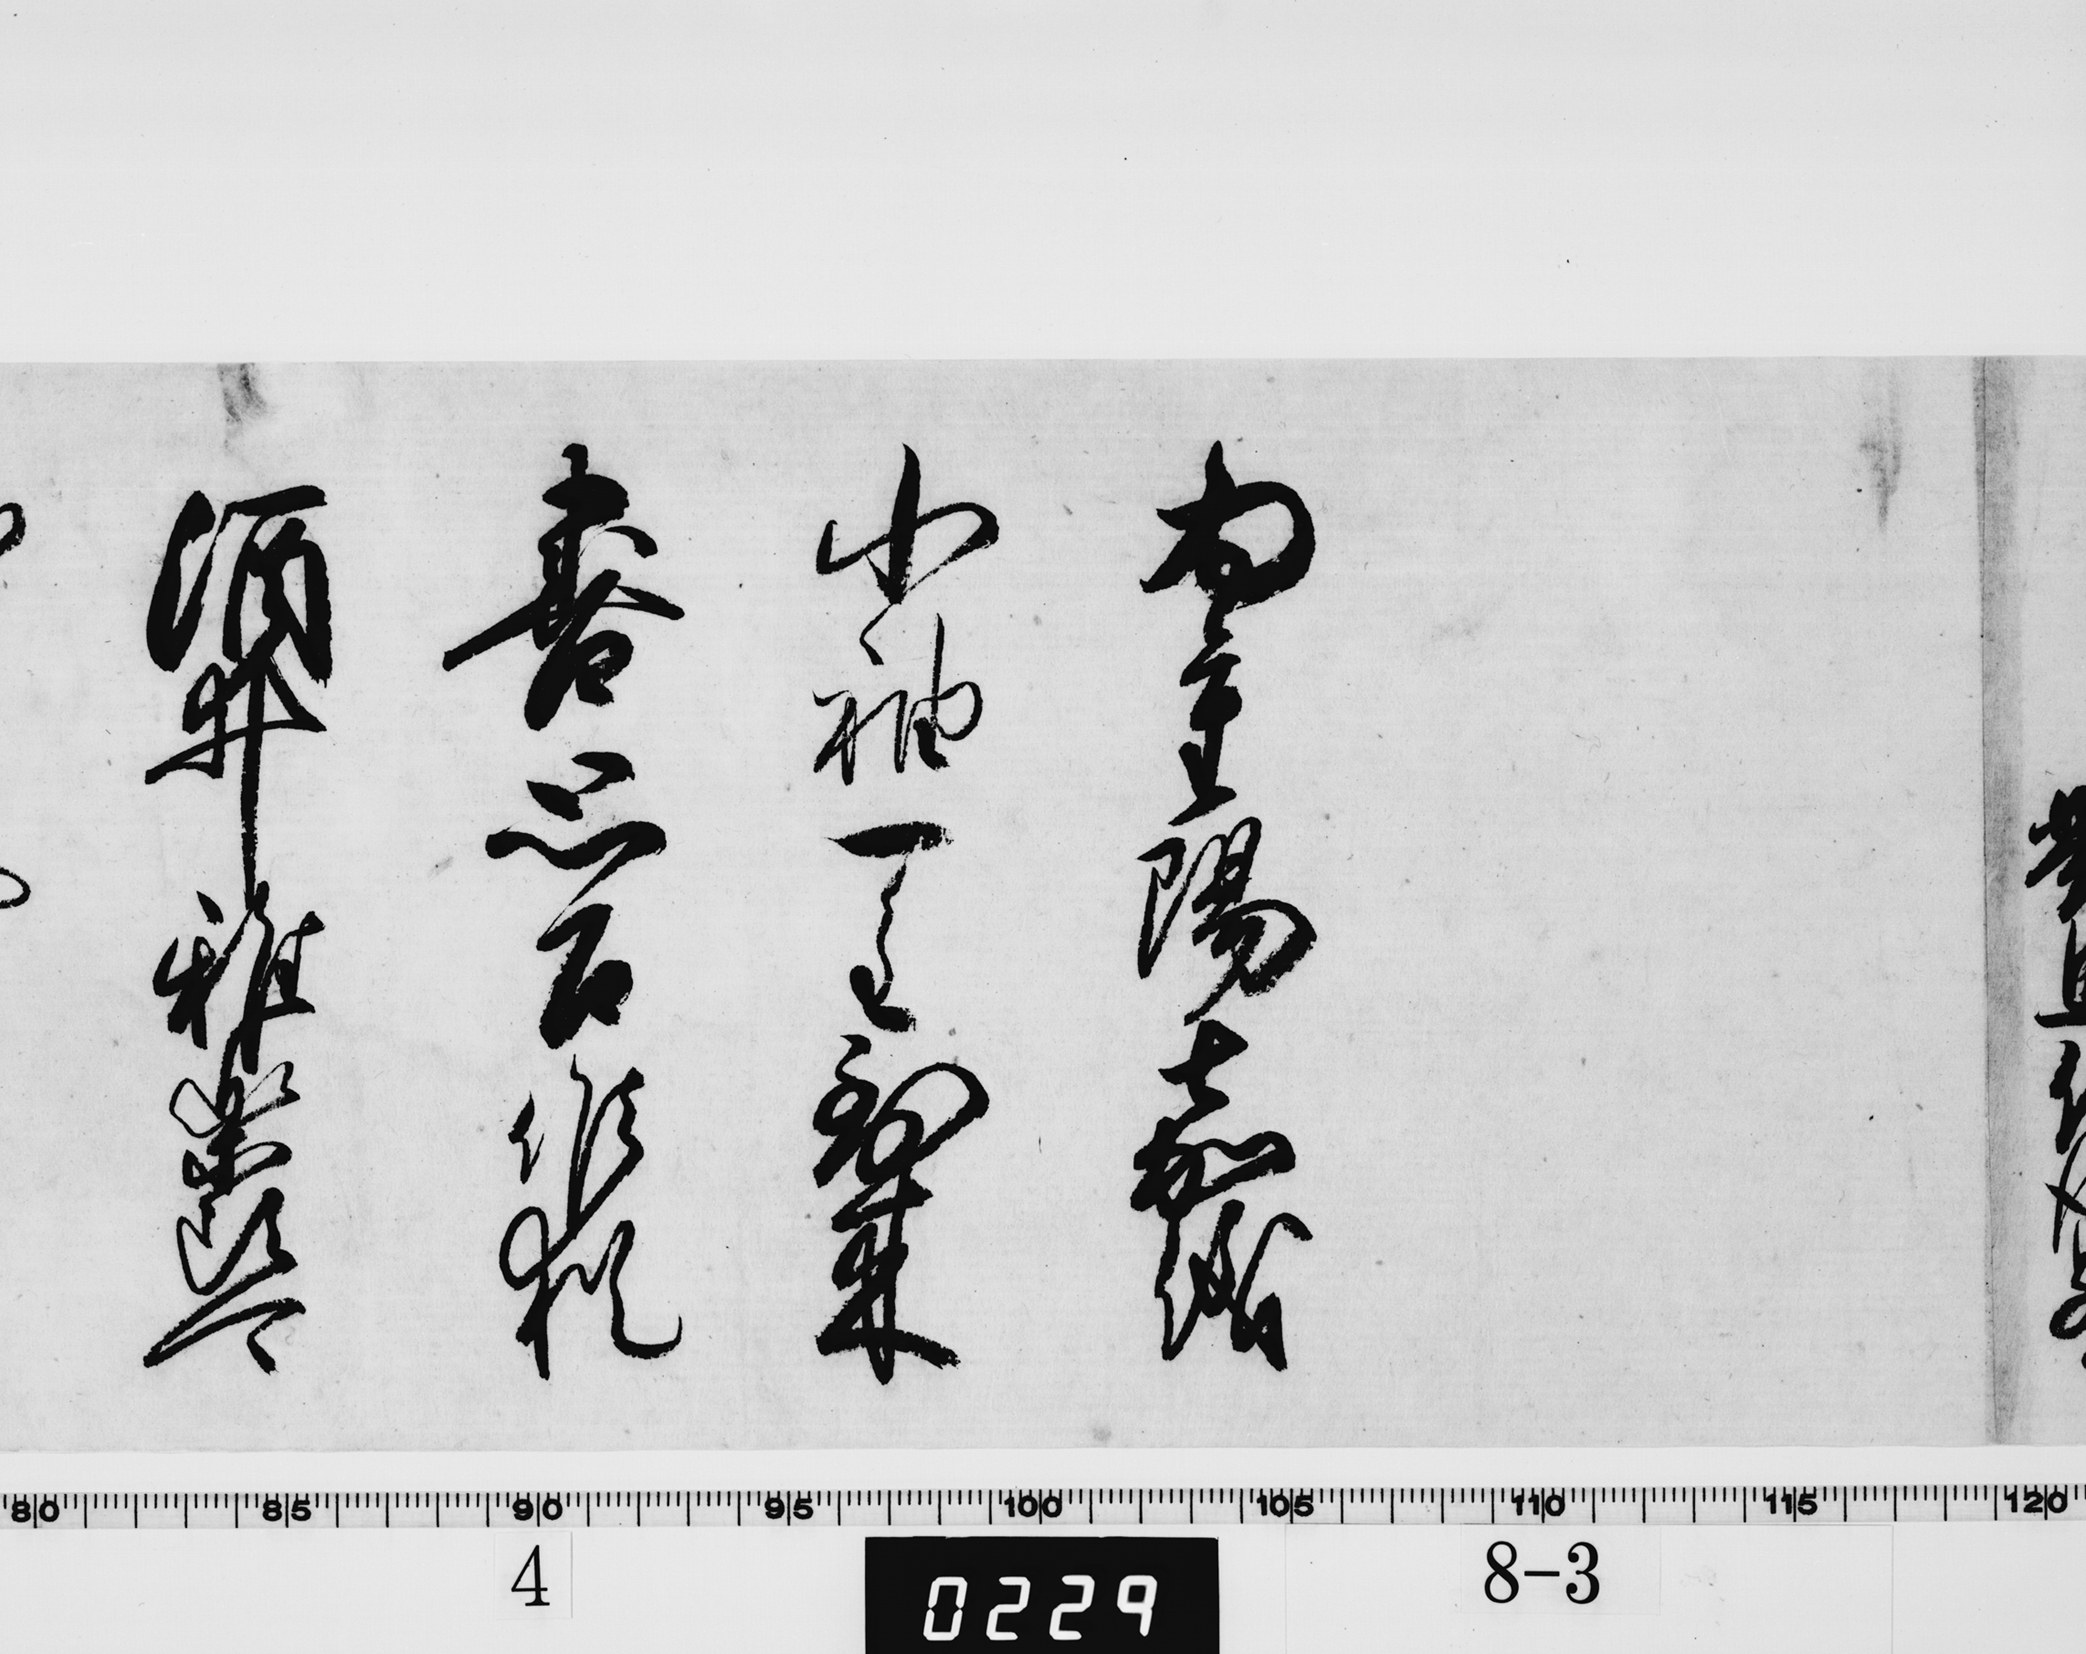 為重陽嘉儀
小袖一重到来
喜思召候猶
酒井雅楽頭
80 85 90 95 100 105 110 115 120
4
0229
8-3